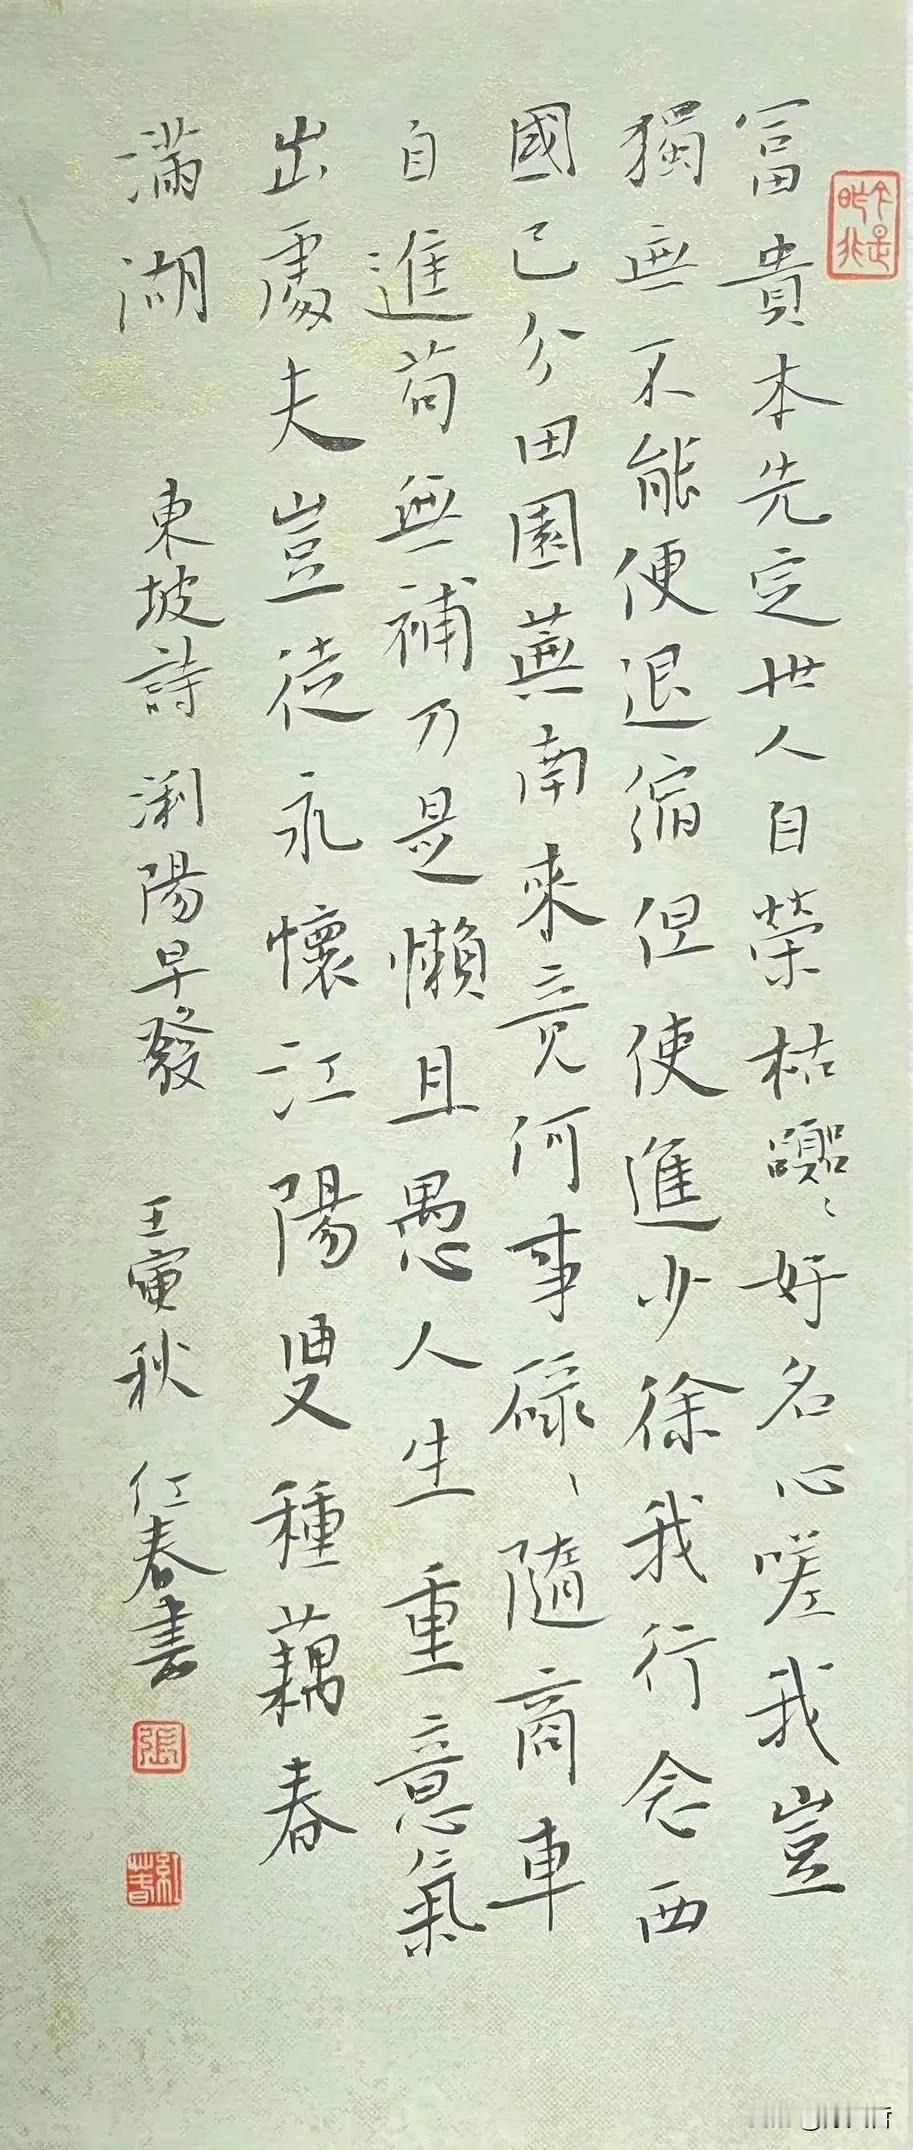 今是昨非
富貴本先定世人自榮枯囂〻好名心嗟我豈
獨無不能便退縮但使進少徐我行念西
國已分田園蕪南來竟何事碌〻隨商車
自進苟無補乃是懶且愚人生重意氣
出處夫豈徒永懷江陽叟種藕春
滿湖 東坡詩 浰陽早發 壬寅秋 紅春書
張
紅春